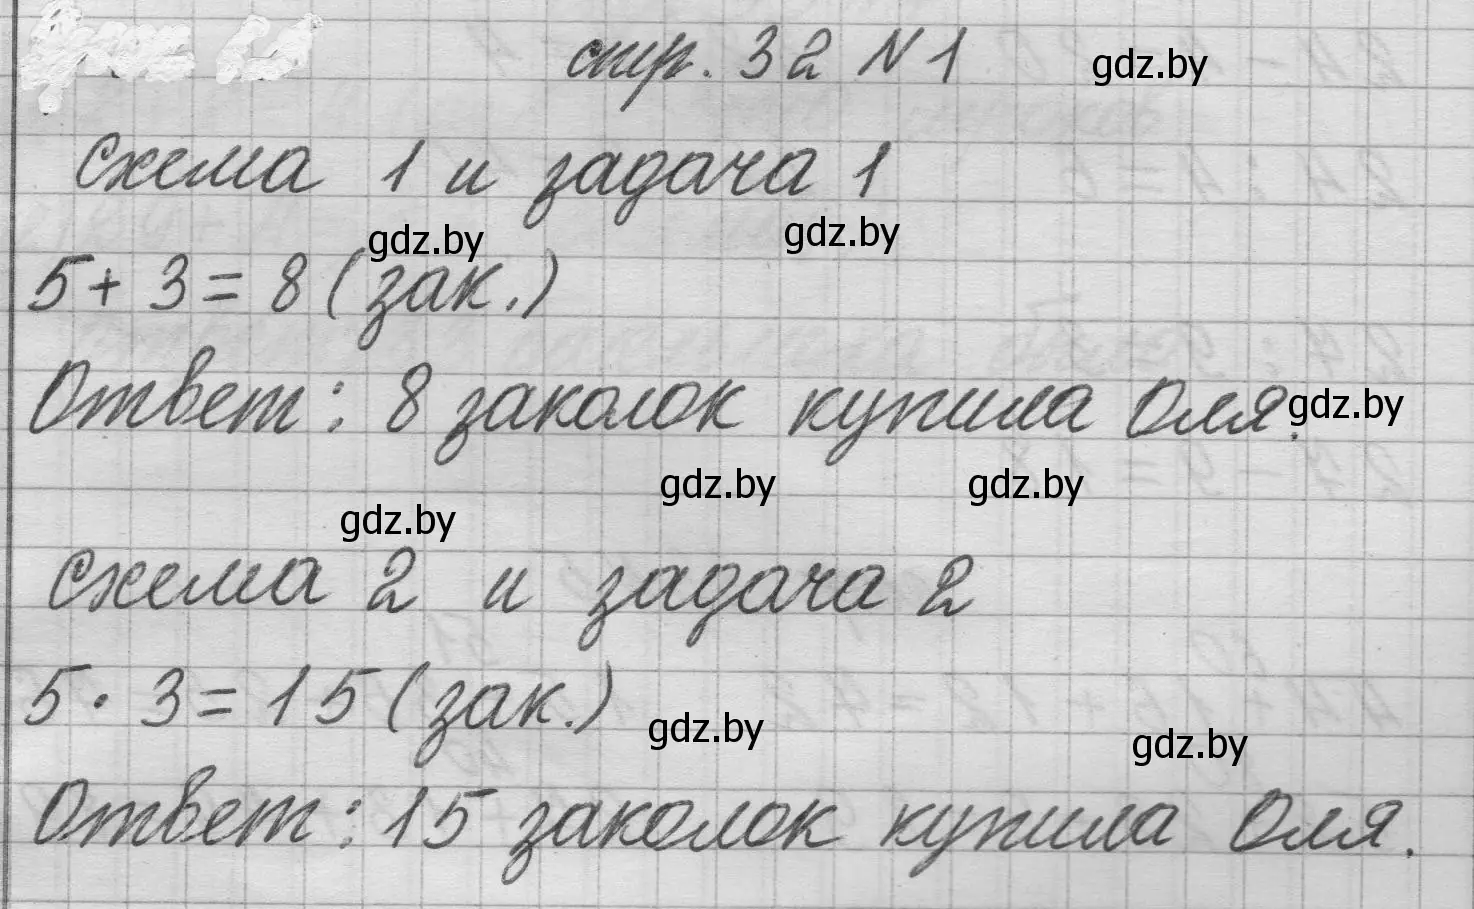 стр. 32 N 1 gdz.by
схема 1 и задача 1
gdz.by gdz.by
5 + 3 = 8 (зак.)
Ответ: 8 заколок купила Оля. gdz.by
gdz.by gdz.by
gdz.by
схема 2 и задача 2
5 · 3 = 15 (зак.)
gdz.by gdz.by
Ответ: 15 заколок купила Оля.